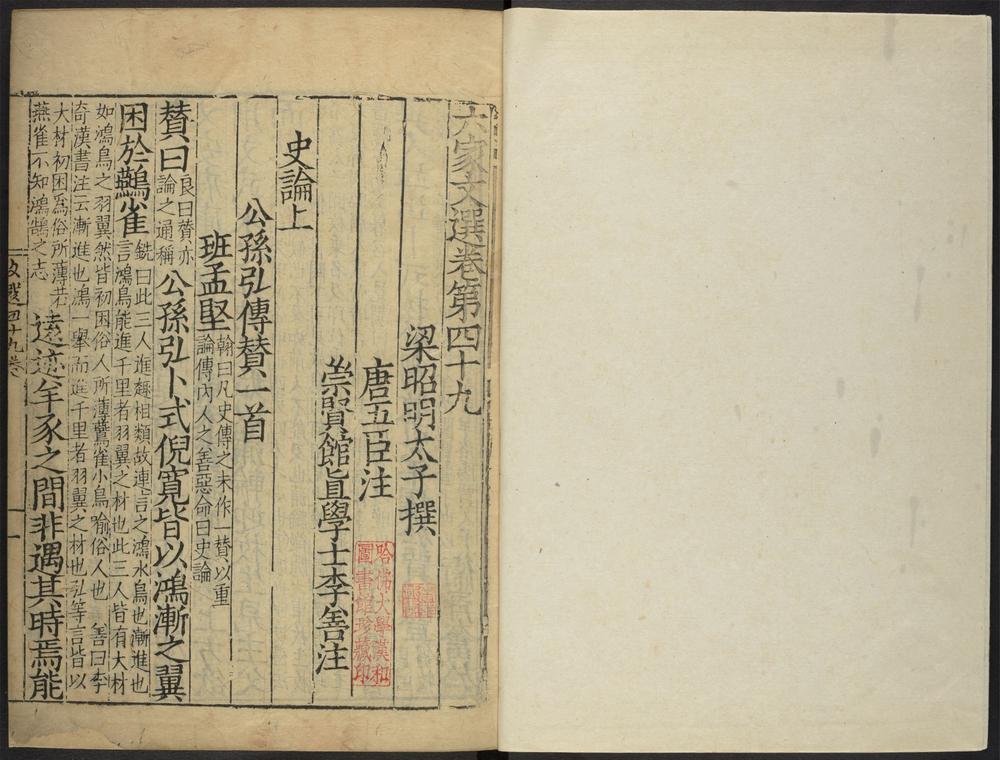 六家文選卷第四十九
梁昭明太子撰
唐五臣注
崇賢館直學士李善注
哈佛大學漢和
圖書館珍藏印
史論上
公孫弘傳賛一首
班孟堅
翰曰凡史傳之末作一賛以重
論傳內人之善惡命曰史論
賛曰
良曰賛亦
論之通稱
公孫弘卜式倪寬皆以鴻漸之翼
困於鷰雀
銑曰此三人進趣相類故連言之鴻水鳥也漸進也
言鴻鳥能進千里者羽翼之材也此三人皆有大材
如鴻鳥之羽翼然皆初困俗人所薄鷰雀小鳥喻俗人也 善曰李
奇漢書注云漸進也鴻一舉而進千里者羽翼之材也弘等言皆以
大材初困爲俗所薄若
燕雀不知鴻鵠之志
遠迹羊豕之間非遇其時焉能
文選四十九卷
一